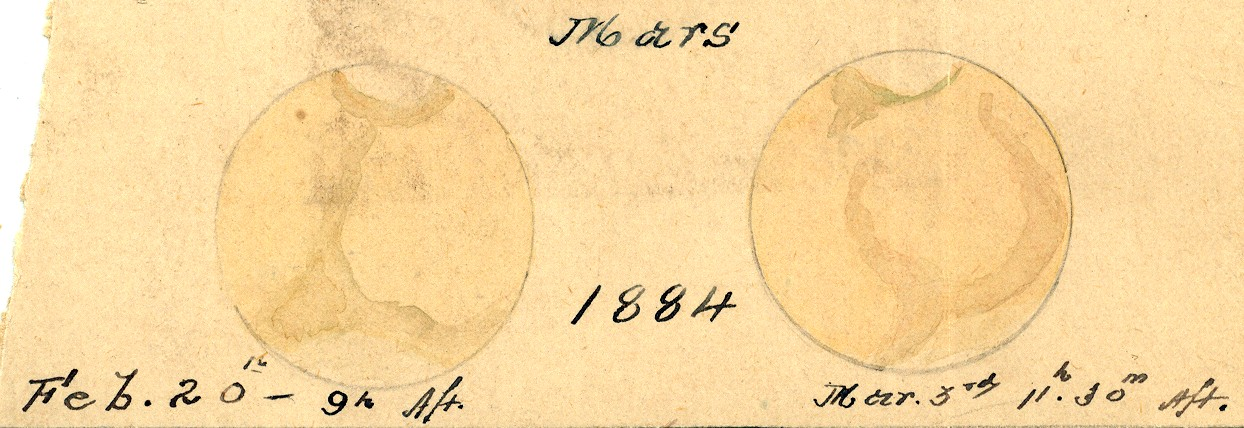 Mars
1884
Feb. 20th - 9h Aft.
Mar. 3rd 11h. 30m Aft.